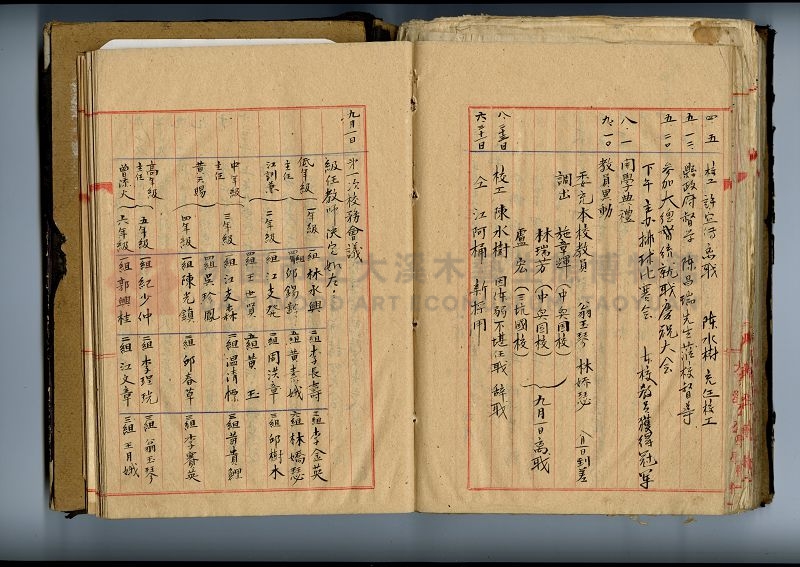 四.五 校工 許宜河 离職 陳水樹 充任校工
五.一二. 縣政府督学 陳昌瑞先生蒞校督導
五.二〇. 参加大總督統就职慶祝大会
下午 主办排球比賽会 本校教员獲得冠軍
八.一 開學典禮
九.一〇 教員異動
委充本校教員 翁玉琴 林嬌瑟 八月一日到差
調出 施章輝(中央国校)
林瑞芳(中央国校) 九月一日离职
盧宏(三坑國校)
八.三一日 校工 陳水樹 因体弱不堪任職 辞职
六.三十一日 仝 江阿桶 新採用
九月一日 第一次校務會議
級任教师决定如左
低年級 主任 江訓兼
一年級 一組林永興 二組李長壽 三組李金英
四組邱錫龍 五組黃志娥 六組林嬌瑟
二年級 一組江支發 二組周洪章 三組邱樹木
四組王世賢 五組黃玉
中年級 主任 黃天賜
三年級 一組江支森 二組温清標 三組黃貴鯉
四組吳珍鳳
四年級 一組陳光鎮 二組邱春草 三組李寶英
高年級 主任 曾深火
五年級 一組紀少仲 二組李理琉 三組翁玉琴
六年級 一組郭興桂 二組江文章 三組王月娥